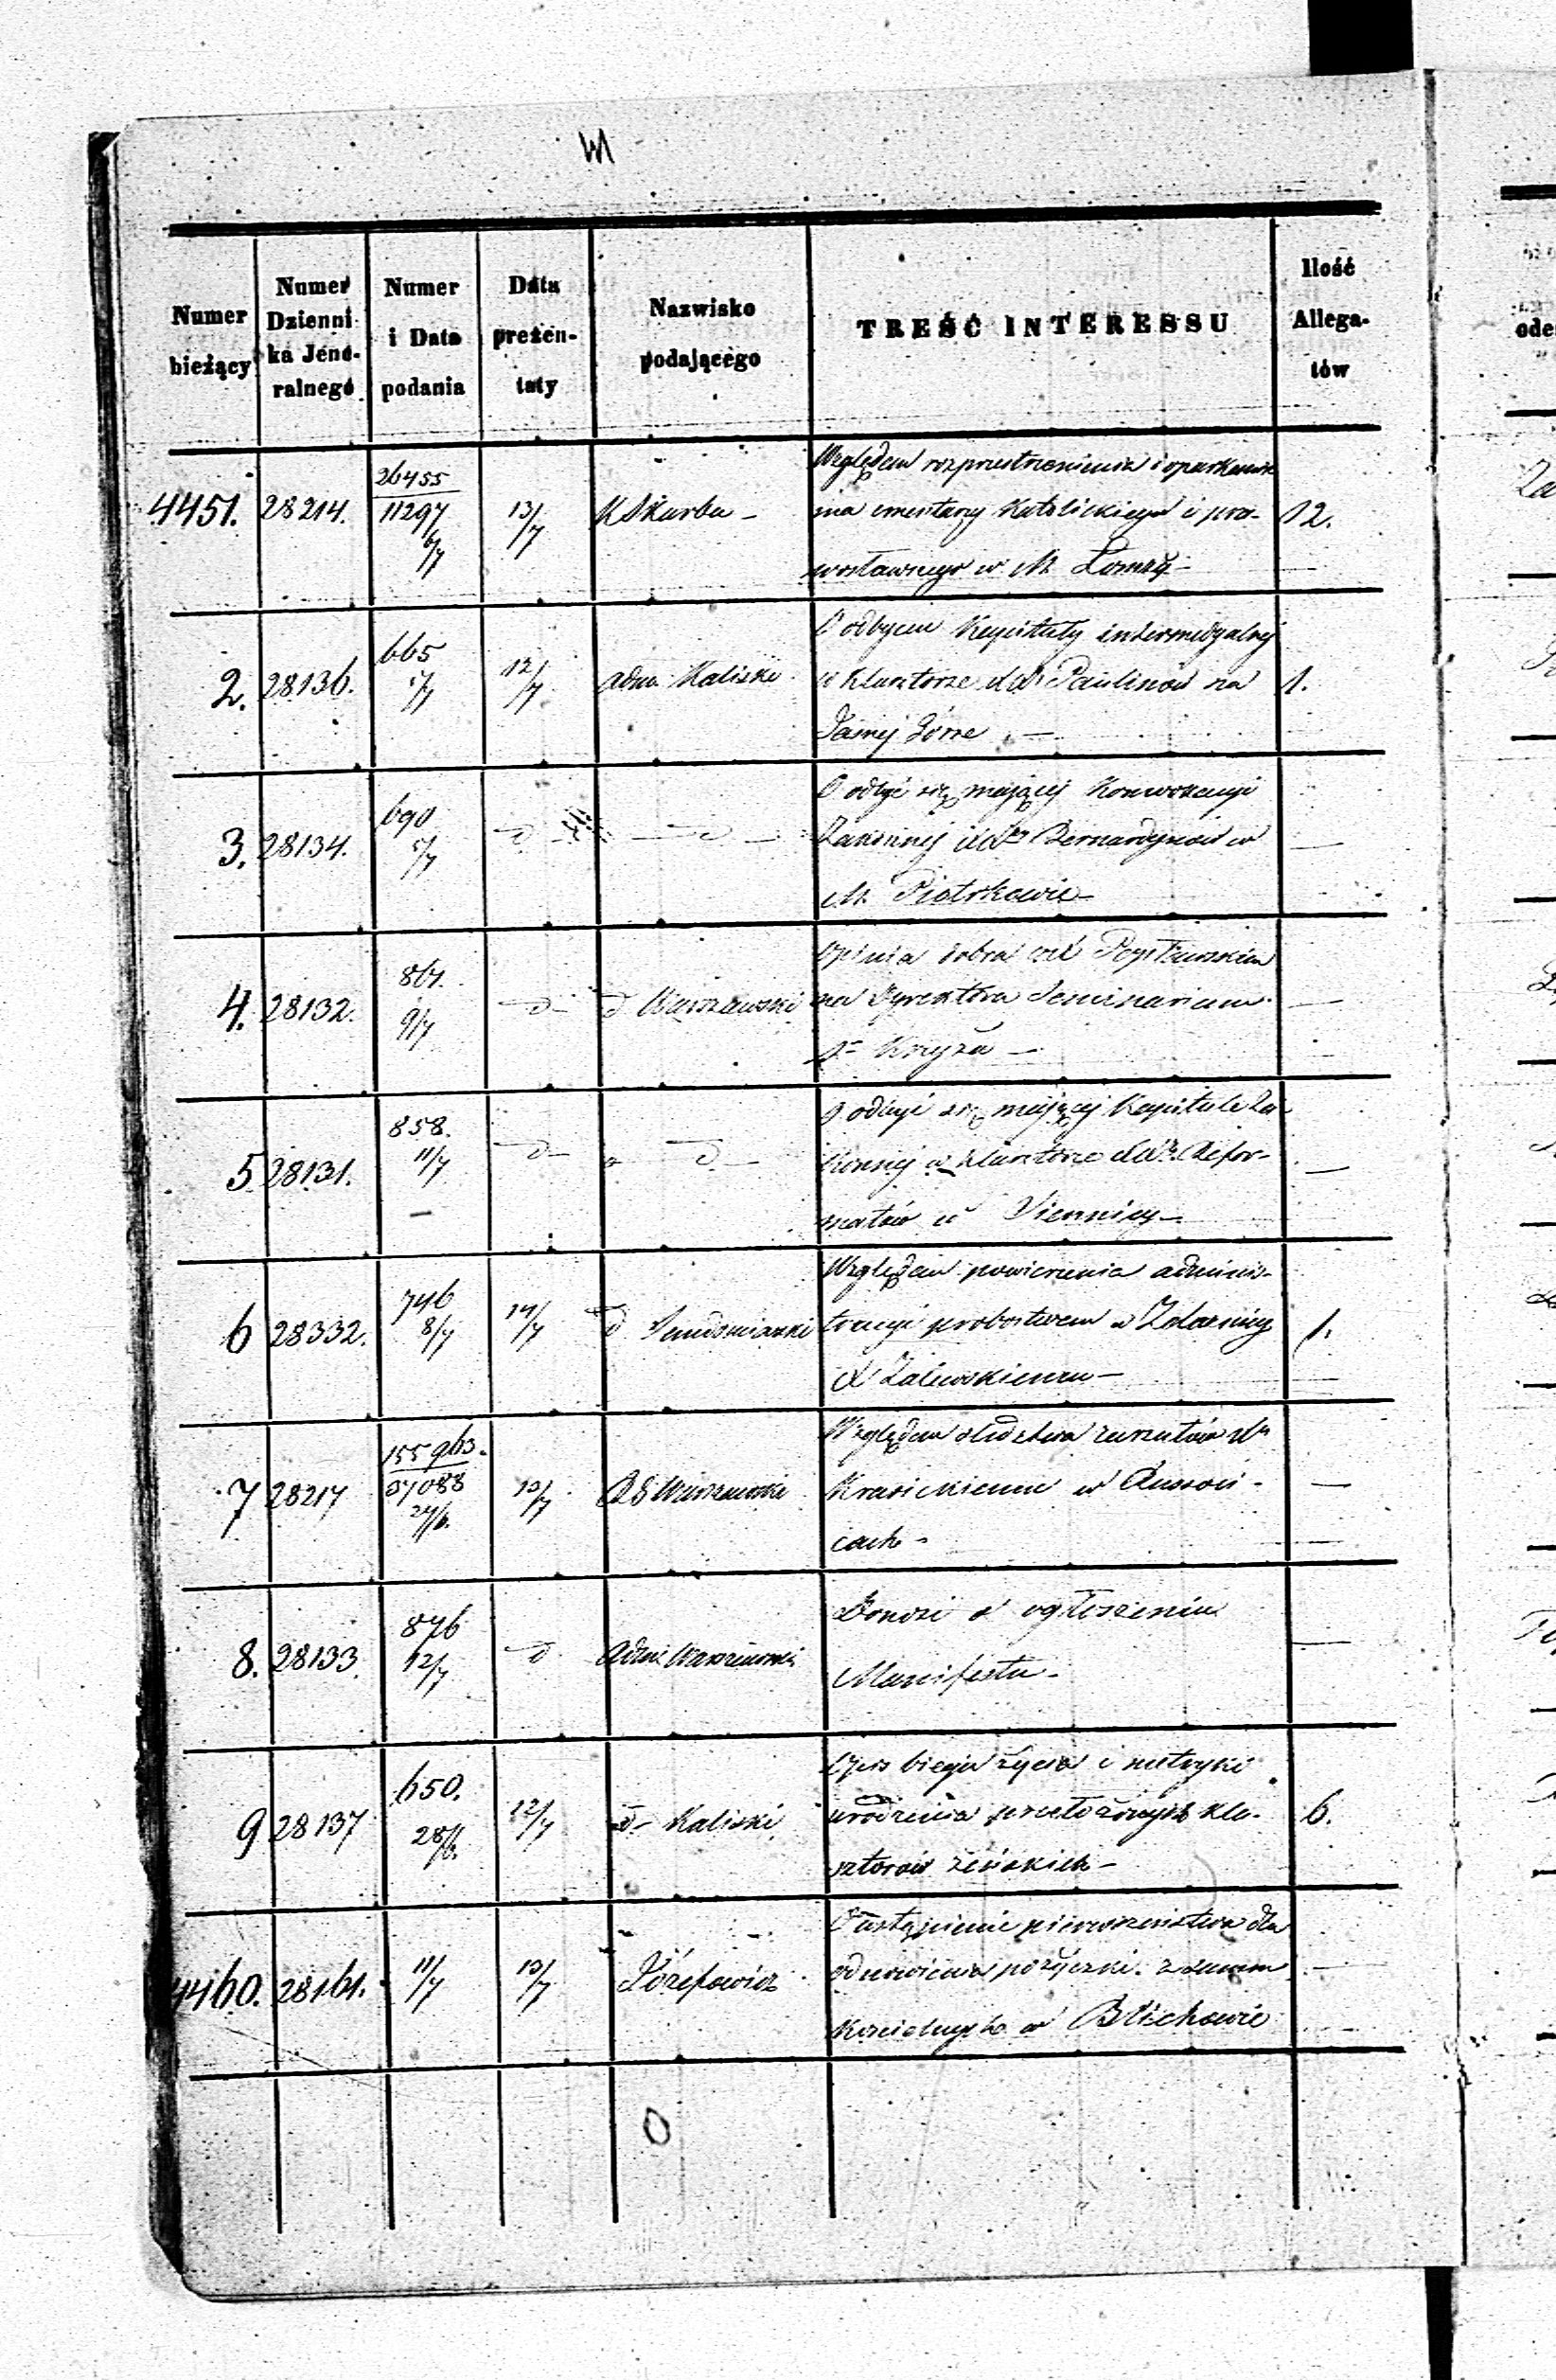 Numer bieżący
Numer Dzienni- ka Jene- ralnego
Numer i Data podania
Data prezen- taty
Nazwisko podającego
TREŚĆ INTERESSU
Ilość Allega- tów
4451. 28214. 26455 / 11297 6/7 13/7 KSkarbu -
Względem rozprzestrzenienia i oparkanie-
nia cmentarzy Katolickiego i pra-
wosławnego w M. Łomży -
12.
2. 28136. 665 5/7 12/7 Adm. Kaliski
O odbyciu Kapituły intermedyalnej
w Klasztorze Paulinów na
Jasnej Górze -
1.
3. 28134. 690 5/7 d - d -
O odbyć się mającej Konwokacyi
Zakonnej Bernardynów w
M. Piotrkowie -
4. 28132. 867. 9/7 d - d Warszawski
Opinia dobra
na Dyrektora Seminarium
Sgo Krzyża -
5 28131. 858. 11/7 d - d -
O odbyć się mającej Kapitule Za-
konnej w Klasztorze Refor-
matów w Piennicy -
6 28332. 746 8/7 14/7 d Sandomierski
Względem powierzenia adminis-
tracyi probostwem w
X Zalewskiemu -
1.
7 28217 155963. / 57088 24/6. 13/7 RG Warszawski
Względem śledztwa zarzutów
Krasickiemu w
cach -
8. 28133. 876 12/7 d Adm. Warszawski
Donosi o ogłoszeniu
Manifestu -
9 28137 650. 28/6. 12/7 d - Kaliski
Opis biegu życia i metryki
urodzenia przełożonych kla-
sztorów żeńskich -
6.
4460. 28161. 11/7 13/7 Józefowicz
Ustąpienie pierwszeństwa dla
odnowienia pożyczki z summ
Kościelnych w Blichowie